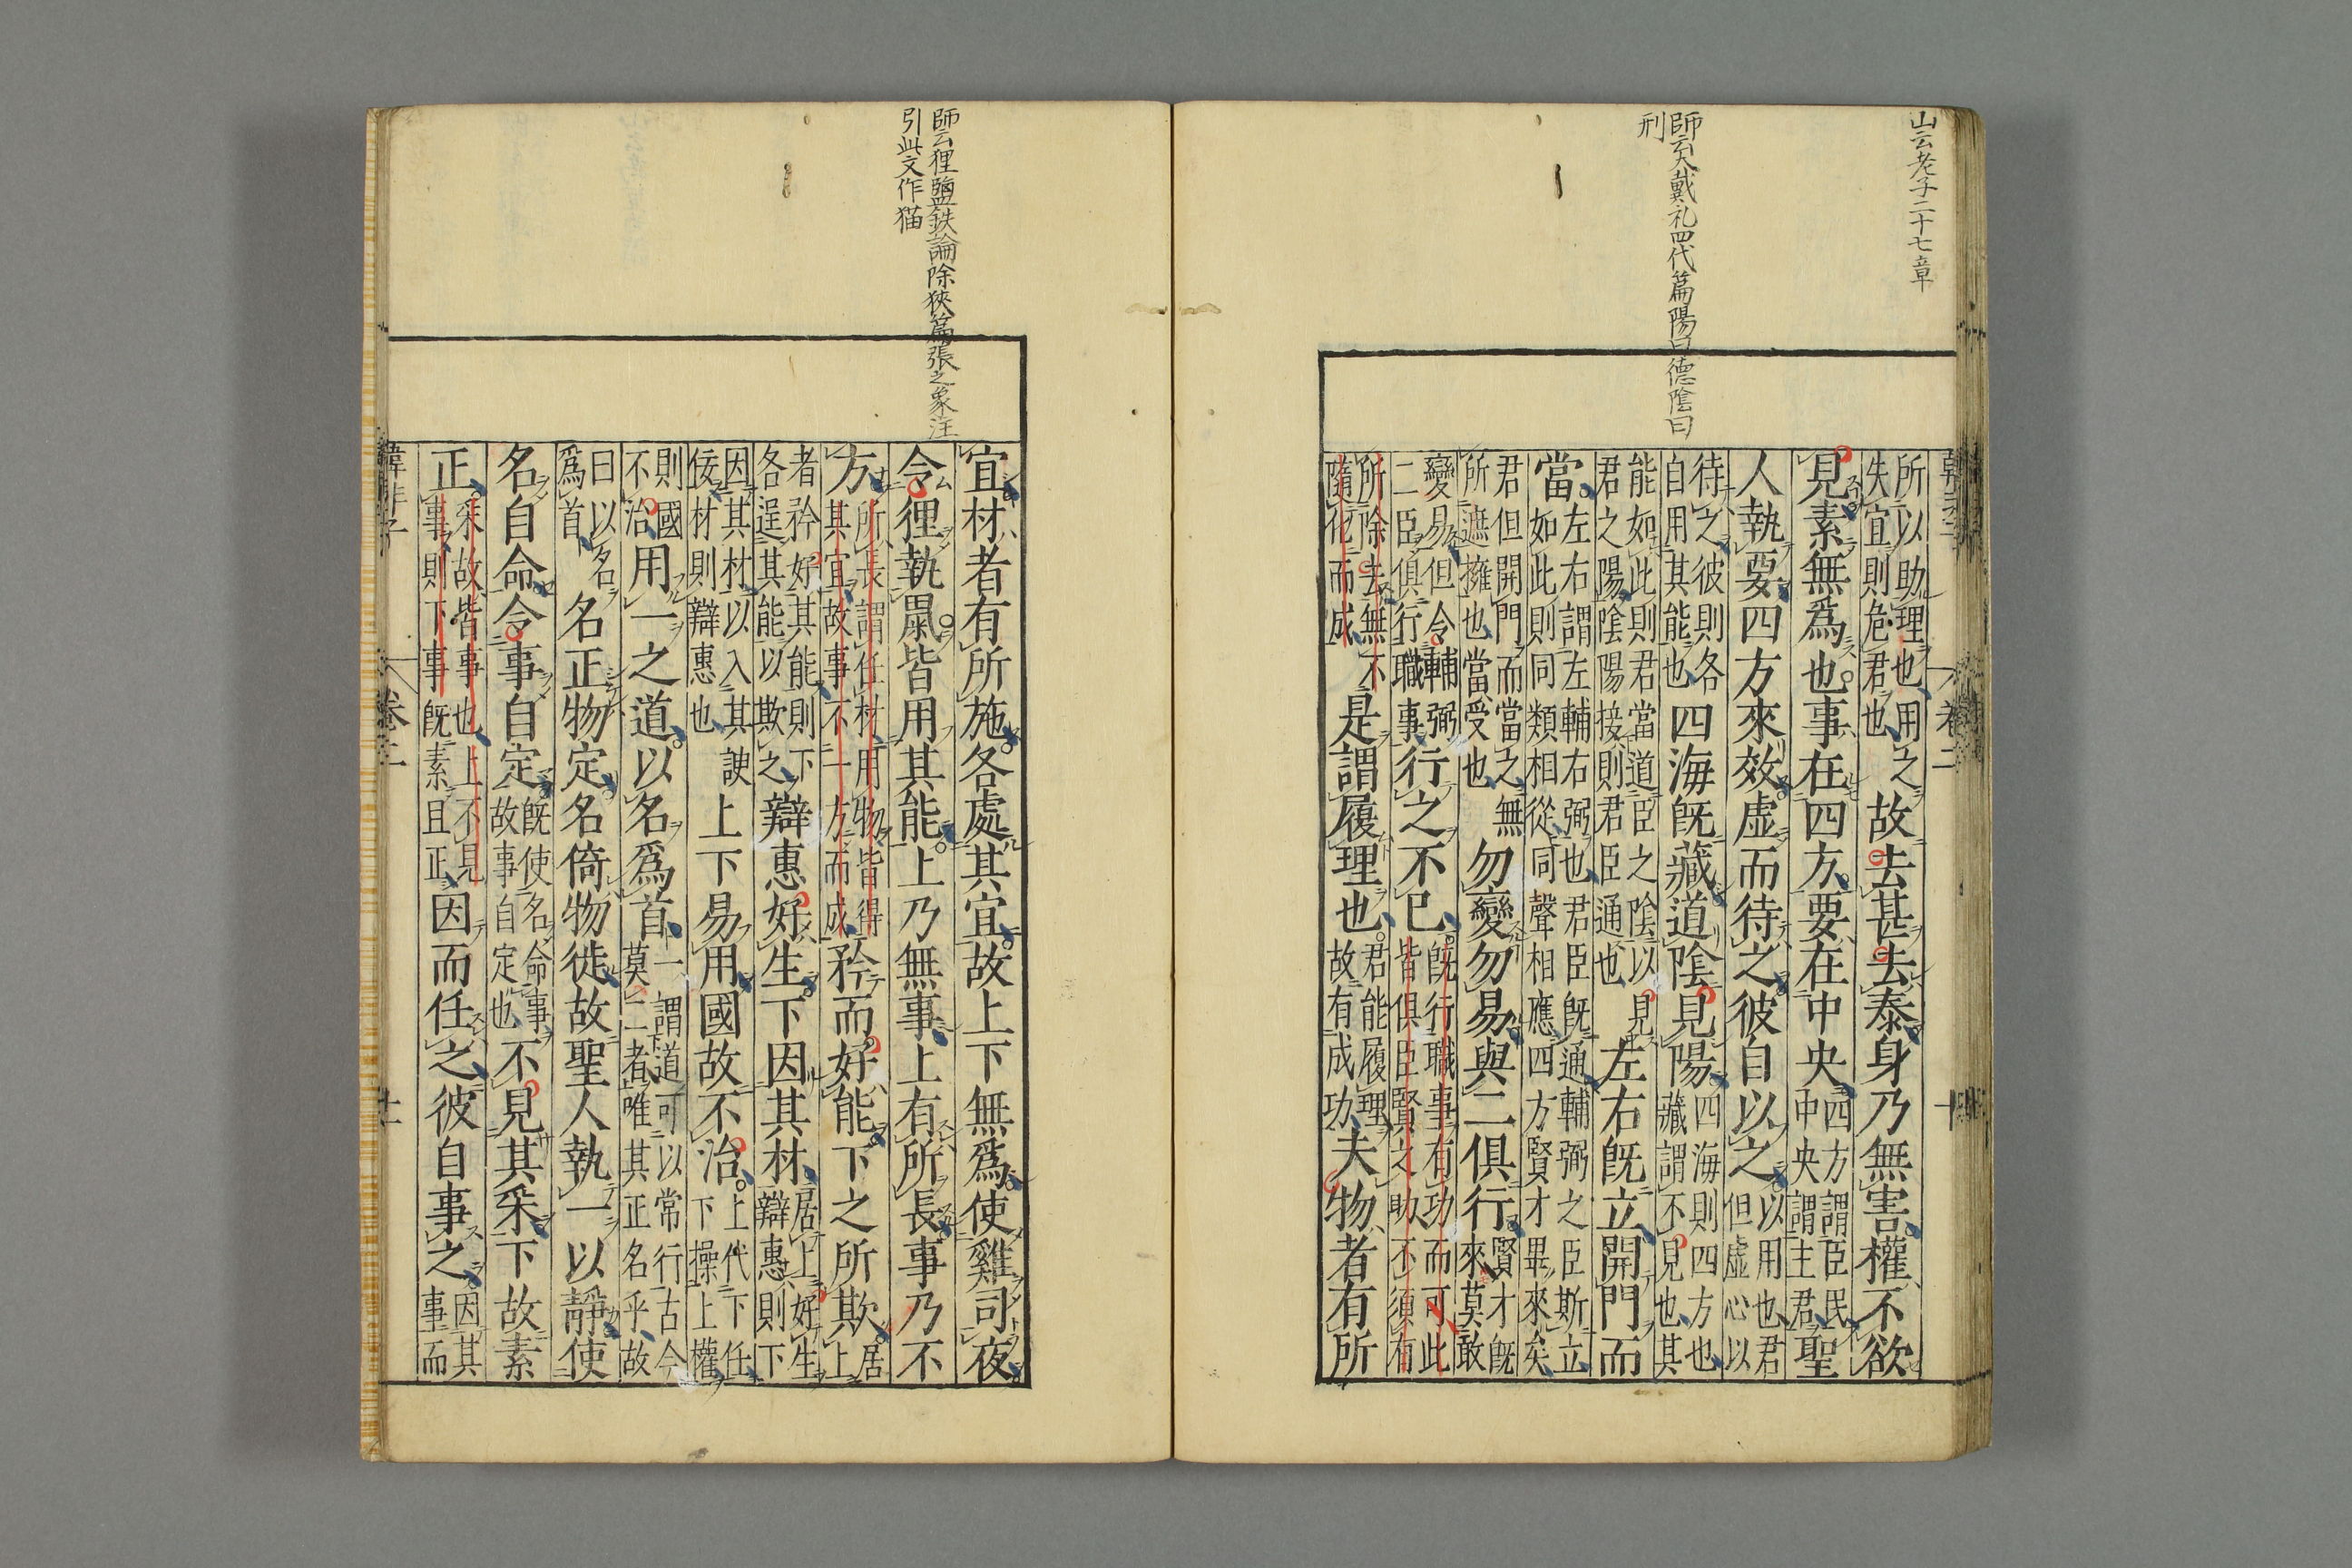 山云老子二十七章
師云大戴礼四代篇陽曰德陰曰
刑
所以助理也用之失宜則危君也故去甚去泰身乃無害權不欲
見素無爲也事在四方要在中央四方謂臣民中央謂主君聖
人執要四方來效虚而待之彼自以之以用也君但虚心以
待之彼則各自用其能也四海既藏道陰見陽四海則四方也藏謂不見也其
能如此則君當道臣之陰以見君之陽陰陽接則君臣通也左右既立開門而
當左右謂左輔右弼也君臣既通輔弼之臣斯立如此則同類相從同聲相應四方賢才畢來矣
君但開門而當之無所遮擁也當受也勿變勿易與二俱行賢才既來莫敢
變易但令輔弼二臣俱行職事行之不已既行職事有功而可此皆俱臣賢之助不須有
所除去無不隨化而成是謂履理也君能履理故有成功夫物者有所
師云狸鹽鉄論除狹篇張之象注
引此文作猫
宜材者有所施各處其宜故上下無爲使雞司夜
令狸執鼠皆用其能上乃無事上有所長事乃不
方所長謂任材用物皆得其宜故事不一方而成矜而好能下之所欺居上
者矜好其能則下各逞其能以欺之辯惠好生下因其材居上好生辯惠則下
因其材以入其諛佞材則辯惠也上下易用國故不治上代下任下操上權
則國不治用一之道以名爲首一謂道可以常行古今莫二者唯其正名乎故
曰以名爲首名正物定名倚物徙故聖人執一以靜使
名自命令事自定既使名命事故事自定也不見其采下故素
正采故皆事也上不見事則下事既素且正因而任之彼自事之因其事而
韓非子 卷二 十一